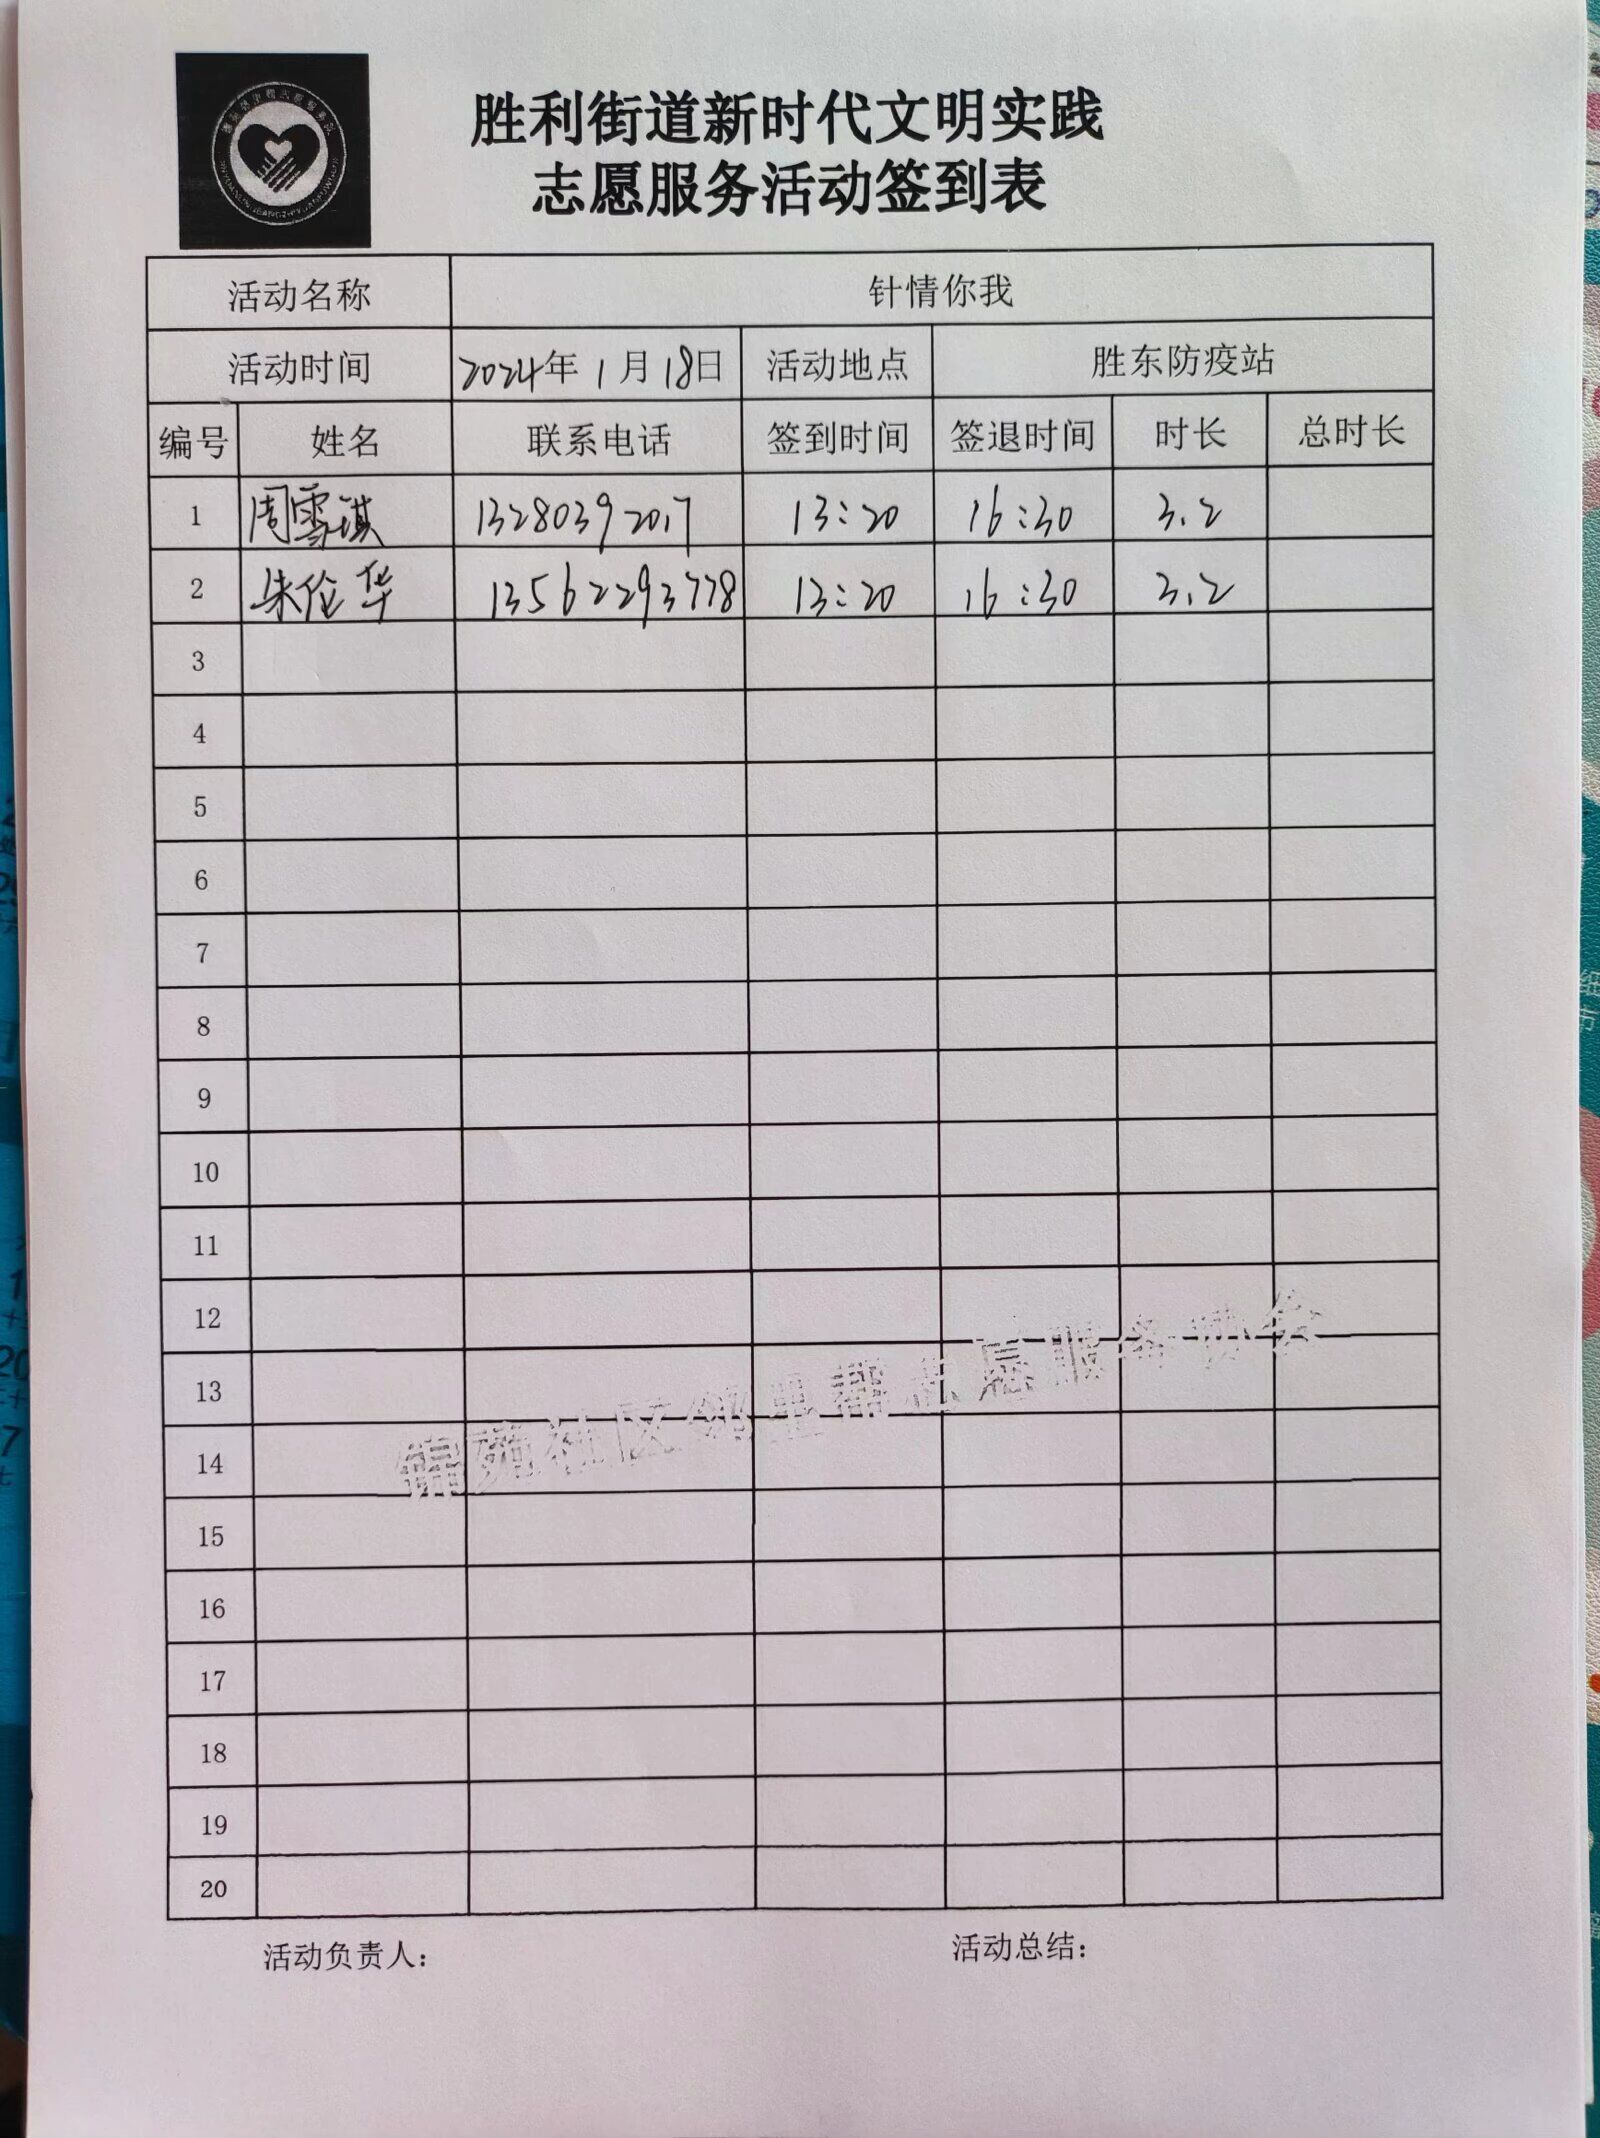 胜利街道新时代文明实践
志愿服务活动签到表
活动名称 针情你我
活动时间 2024年1月18日 活动地点 胜东防疫站
编号 姓名 联系电话 签到时间 签退时间 时长 总时长
1 周雪琪 13280392017 13:20 16:30 3.2
2 朱俭华 13562293778 13:20 16:30 3.2
3
4
5
6
7
8
9
10
11
12
13
锦苑社区邻里帮志愿服务协会
14
15
16
17
18
19
20
活动负责人: 活动总结: